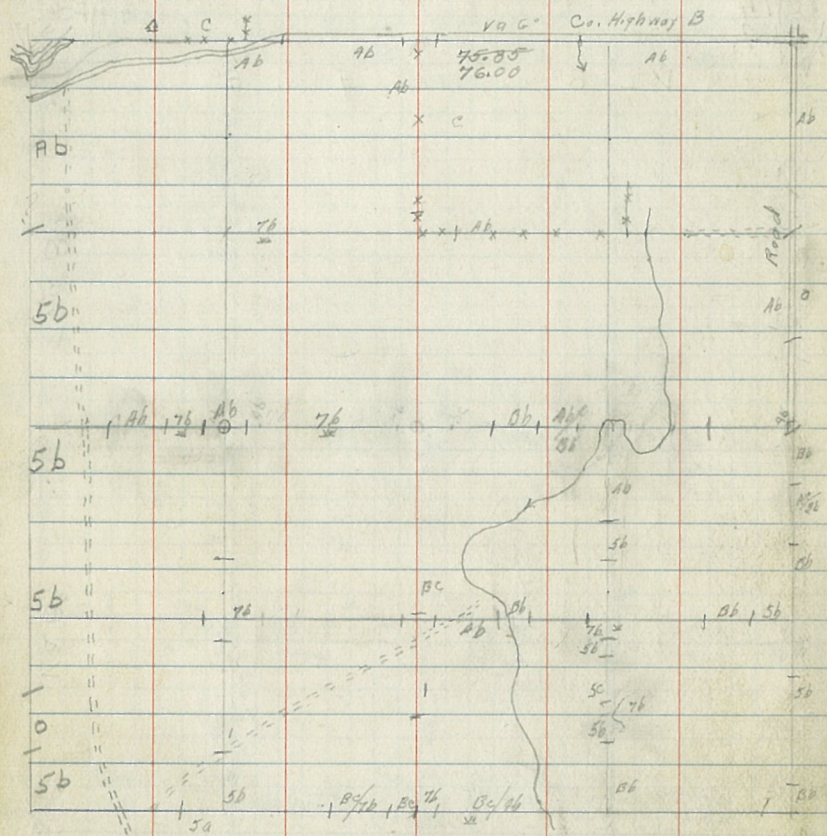 C Va G Co. Highway B
Ab Ab 75.85 Ab
76.00
Ab
C Ab
Ab
7b Ab
Road
5b Ab 0
Ab 7b Ab 7b Bb Ab/Bb
5b Bb
Ab
5b Bb
Bc
5b 7b Ab Bb 7b Bb 5b
5b
5c 7b 5b
0 5b
5b 5b Bc/7b Bc 7b Bc/7b Bb Bb
5a